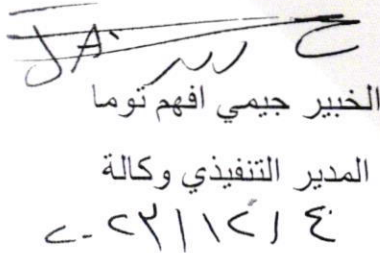 الخبير جيمي افهم توما
المدير التنفيذي وكالة
٢٠٢٣/١٢/٤